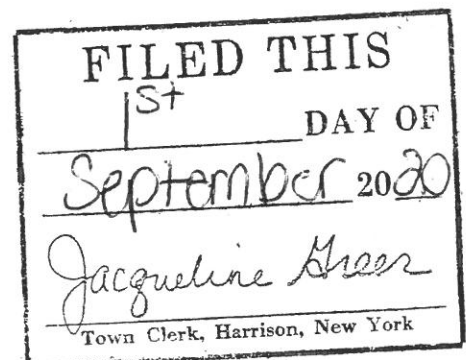 FILED THIS
1st DAY OF
September 2020
Jacqueline Greer
Town Clerk, Harrison, New York